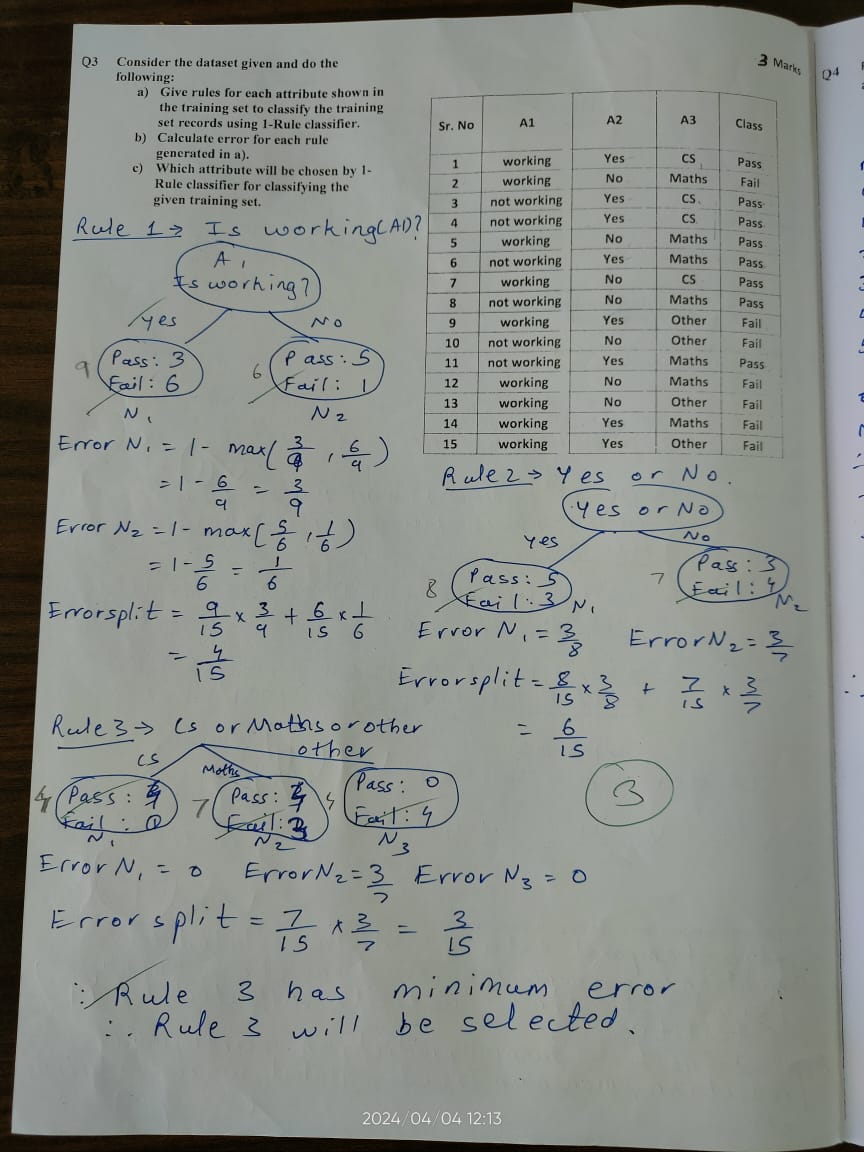 Q3 Consider the dataset given and do the
following:
a) Give rules for each attribute shown in
the training set to classify the training
set records using 1-Rule classifier.
b) Calculate error for each rule
generated in a).
c) Which attribute will be chosen by 1-
Rule classifier for classifying the
given training set.
3 Marks
Q4
Sr. No A1 A2 A3 Class
1 working Yes CS Pass
2 working No Maths Fail
3 not working Yes CS Pass
4 not working Yes CS Pass
5 working No Maths Pass
6 not working Yes Maths Pass
7 working No CS Pass
8 not working No Maths Pass
9 working Yes Other Fail
10 not working No Other Fail
11 not working Yes Maths Pass
12 working No Maths Fail
13 working No Other Fail
14 working Yes Maths Fail
15 working Yes Other Fail
Rule 1 → Is working(A1)?
A1
Is working?
Yes No
9 Pass: 3
Fail: 6
N1
6 Pass: 5
Fail: 1
N2
Error N1 = 1 - max(3/9, 6/9)
= 1 - 6/9 = 3/9
Error N2 = 1 - max(5/6, 1/6)
= 1 - 5/6 = 1/6
Errorsplit = 9/15 × 3/9 + 6/15 × 1/6
= 4/15
Rule 2 → Yes or No.
Yes or No
Yes No
8 Pass: 5
Fail: 3 N1
7 Pass: 3
Fail: 4
N2
Error N1 = 3/8 Error N2 = 3/7
Errorsplit = 8/15 × 3/8 + 7/15 × 3/7
= 6/15
Rule 3 → Cs or Maths or other
CS Maths other
4 Pass: 4
Fail: 0
N1
7 Pass: 4
Fail: 3
N2
4 Pass: 0
Fail: 4
N3
Error N1 = 0 Error N2 = 3/7 Error N3 = 0
Error split = 7/15 × 3/7 = 3/15
3
∴ Rule 3 has minimum error
∴ Rule 3 will be selected.
2024/04/04 12:13